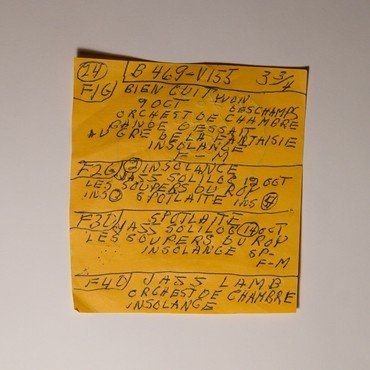 24 B 469-V155 3 3/4
F1G BIEN CUIT WON
9 OCT DESCHAMPS
ORCHEST DE CHAMBRE
AU GRE DE LA FANTAISIE
INSOLANGE
F-M
F2G INSOLANCE
JASS SOLILOQ 19 OCT
LES SOUPERS DU ROY
INS SPOTLAITE INS
F3D SPOTLAITE
JASS SOLILOQ 19 OCT
LES SOUPERS DU ROY
INSOLANGE SP-
F-M
F4D JASS LAMB
ORCHEST DE CHAMBRE
INSOLANGE